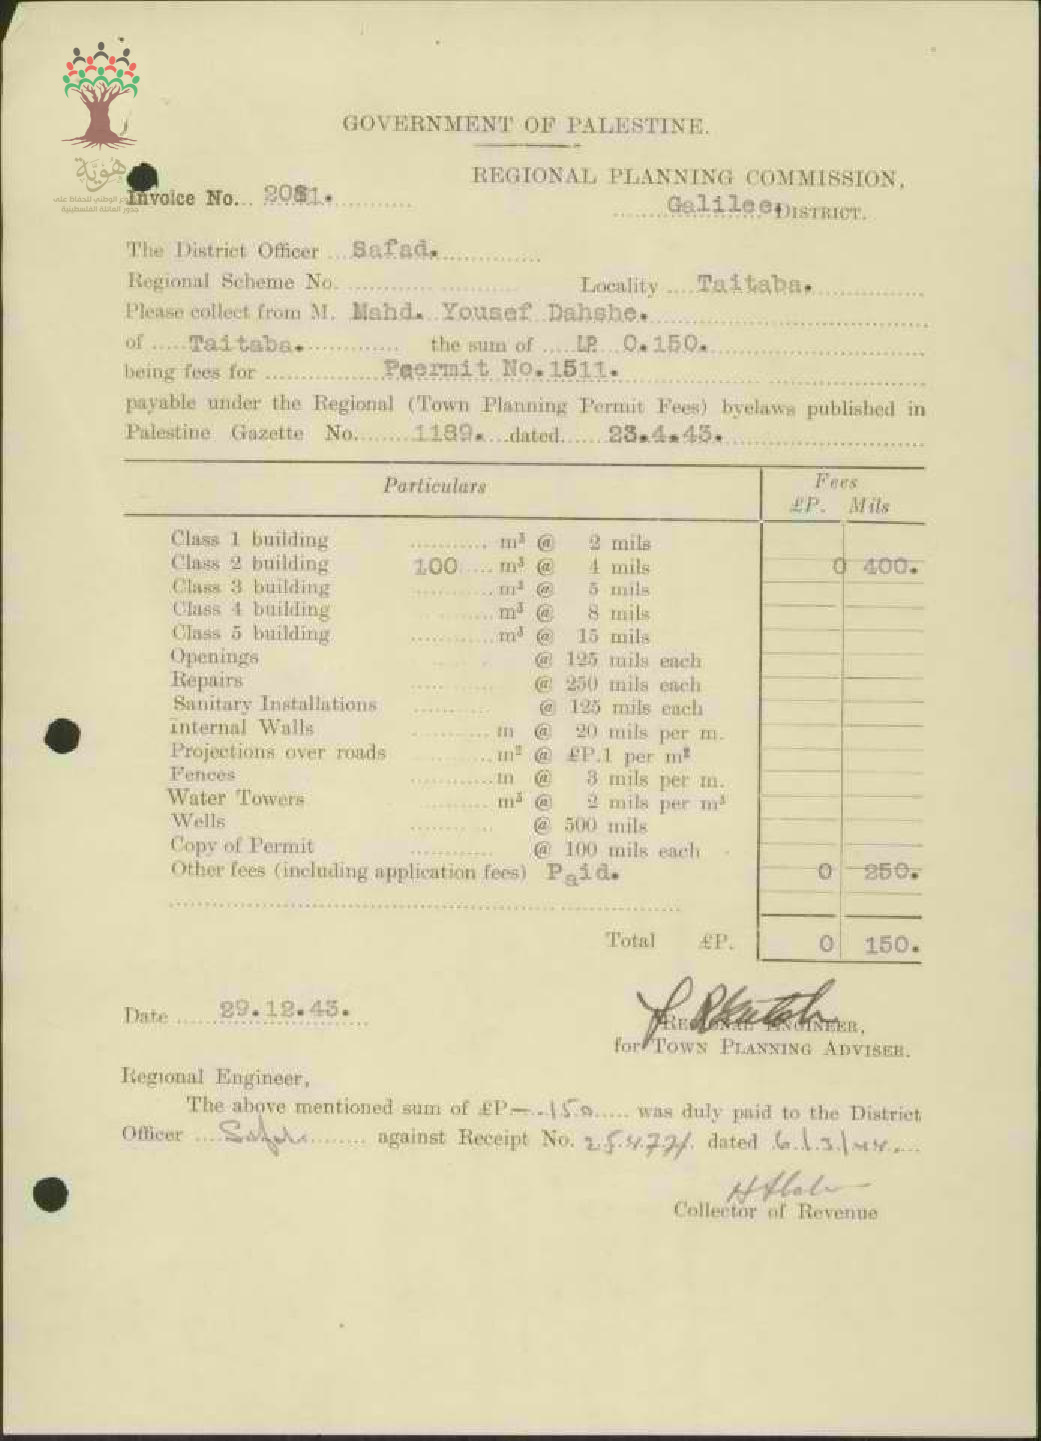 هُويَّة
GOVERNMENT OF PALESTINE.
REGIONAL PLANNING COMMISSION,
Invoice No... 2081.
Galilee. DISTRICT.
The District Officer ... Safad.
Regional Scheme No. Locality .... Taitaba.
Please collect from M. Mahd. Yousef Dahshe.
of ..... Taitaba. the sum of ..... LP. 0.150.
being fees for Peermit No.1511.
payable under the Regional (Town Planning Permit Fees) byelaws published in
Palestine Gazette No. 1189. dated 23.4.43.
Particulars Fees
£P. Mils
Class 1 building m³ @ 2 mils
Class 2 building 100 m³ @ 4 mils 0 400.
Class 3 building m³ @ 5 mils
Class 4 building m³ @ 8 mils
Class 5 building m³ @ 15 mils
Openings @ 125 mils each
Repairs @ 250 mils each
Sanitary Installations @ 125 mils each
Internal Walls m @ 20 mils per m.
Projections over roads m² @ £P.1 per m²
Fences m @ 3 mils per m.
Water Towers m³ @ 2 mils per m³
Wells @ 500 mils
Copy of Permit @ 100 mils each
Other fees (including application fees) Paid. 0 250.
Total £P. 0 150.
Date ..... 29.12.43.
REGIONAL ENGINEER,
for TOWN PLANNING ADVISER.
Regional Engineer,
The above mentioned sum of £P—..150..... was duly paid to the District
Officer .... Safad ........ against Receipt No. 25477/. dated 6/3/44....
Collector of Revenue